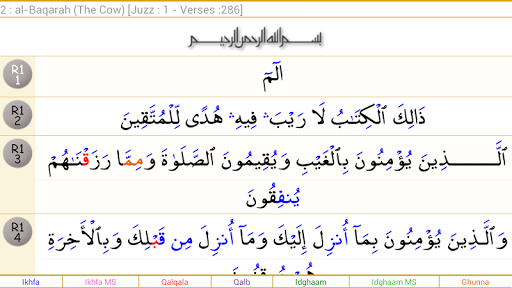 2 : al-Baqarah (The Cow) [Juzz : 1 - Verses :286]
بسم الله الرحمن الرحيم
R1
1
الٓمٓ
R1
2
ذَالِكَ ٱلْكِتَـٰبُ لَا رَيْبَ ۛ فِيهِ ۛ هُدًى لِّلْمُتَّقِينَ
R1
3
ٱلَّـــــذِينَ يُؤْمِنُونَ بِٱلْغَيْبِ وَيُقِيمُونَ ٱلصَّلَوٰةَ وَمِمَّا رَزَقْنَـٰهُمْ
يُنفِقُونَ
R1
4
وَٱلَّذِينَ يُؤْمِنُونَ بِمَآ أُنزِلَ إِلَيْكَ وَمَآ أُنزِلَ مِن قَبْلِكَ وَبِٱلْأَخِرَةِ
هُمْ يُوقِنُونَ
Ikhfa Ikhfa MS Qalqala Qalb Idghaam Idghaam MS Ghunna